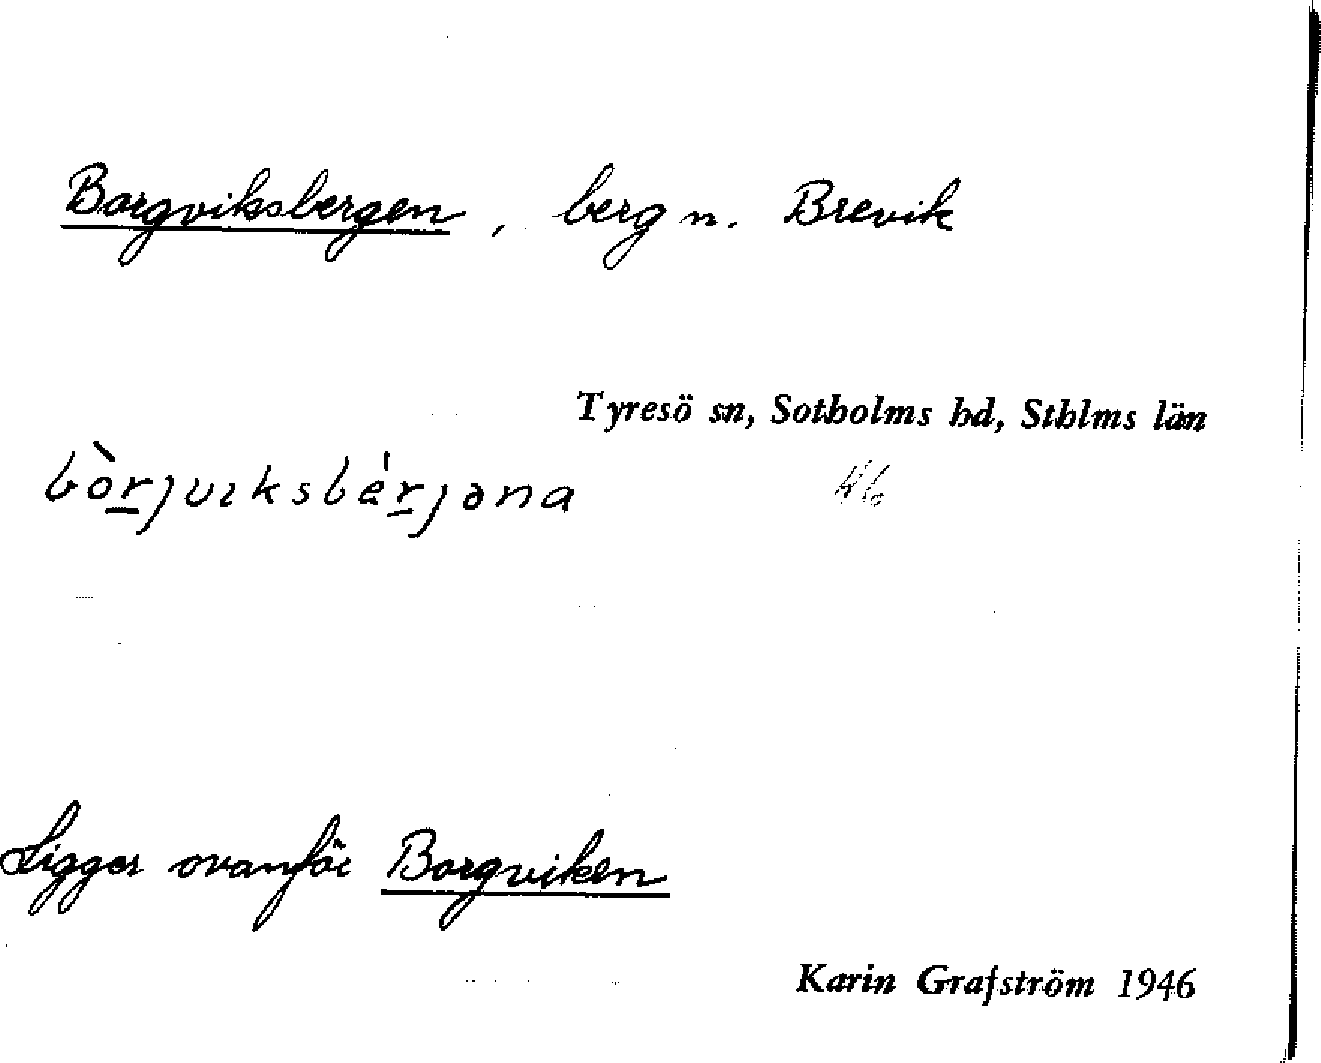 Borgviksbergen, berg n. Brevik
Tyresö sn, Sotholms hd, Sthlms län
bòrjvıksbérjəna
Ligger ovanför Borgviken
Karin Grafström 1946